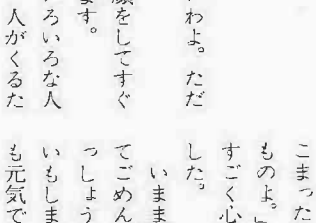 わよ。ただ
顔をしてすぐ
ます。
ろいろな人
人がくるた
こまった
ものよ。
すごく心
した。
いまま
てごめん
っしょう
いもしま
も元気で